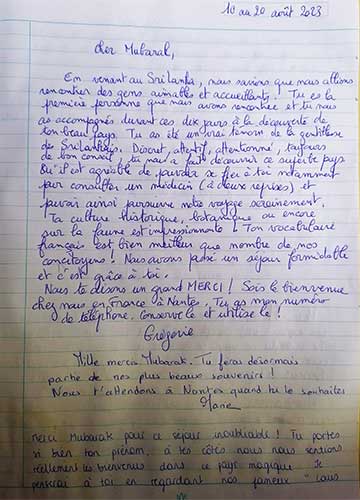 10 au 20 août 2023
Cher Mubarak,
En venant au Sri Lanka, nous savions que nous allions
rencontrer des gens aimables et accueillants. Tu es la
première personne que nous avons rencontrée et tu nous
as accompagnés durant ces dix jours à la découverte de
ton beau pays. Tu as été un vrai témoin de la gentillesse
de Srilankais. Discret, attentif, attentionné, toujours
de bon conseil, tu nous a fait découvrir ce superbe pays.
Qu'il est agréable de pouvoir se fier à toi notamment
pour consulter un médecin (à deux reprises) et
pouvoir ainsi poursuivre notre voyage sereinement.
Ta culture historique, botanique ou encore
sur la faune est impressionnante ! Ton vocabulaire
français est bien meilleur que nombre de nos
concitoyens ! Nous avons passé un séjour formidable
et c'est grâce à toi.
Nous te disons un grand MERCI ! Sois le bienvenue
chez nous en France à Nantes. Tu as mon numéro
de téléphone. Conserve le et utilise le !
Grégorie
Mille mercis Mubarak. Tu feras désormais
partie de nos plus beaux souvenirs !
Nous t'attendons à Nantes quand tu le souhaites
Merci Mubarak pour ce séjour inoubliable ! Tu portes
si bien ton prénom, à tes côtés nous nous sentions
réellement les bienvenus dans ce pays magique. Je
penserai à toi en regardant nos fameux "